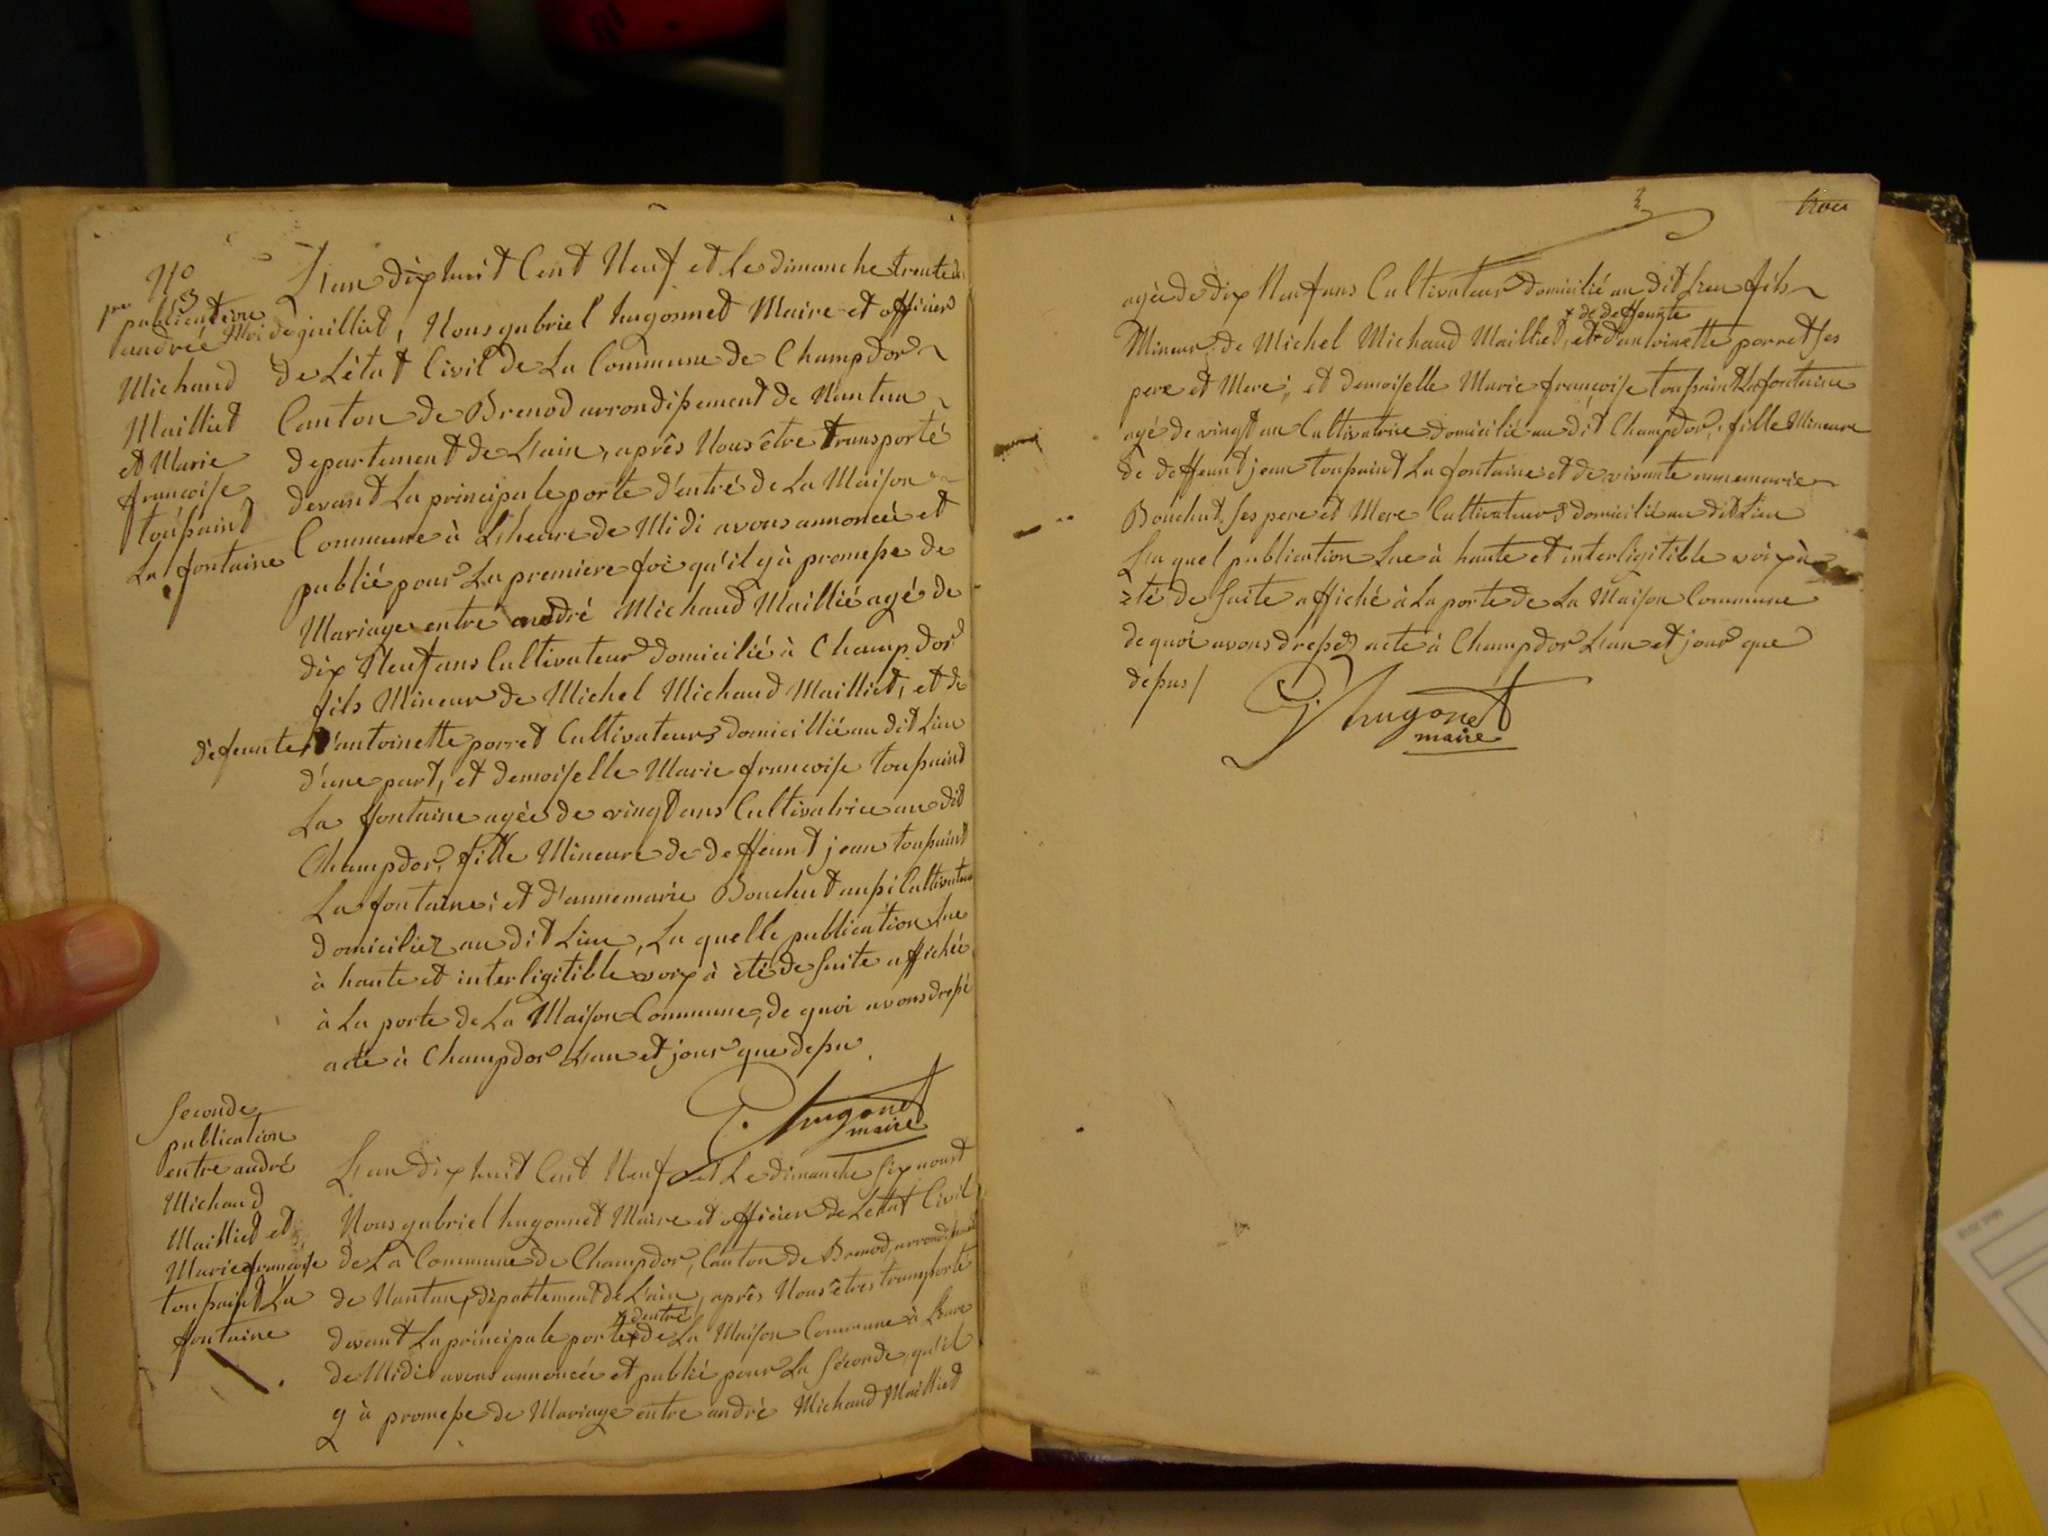 No 3
pre publication
andrée
Michaud
Mailliet
et Marie
francoise
toussaint
La fontaine
L'an dix huit Cent Neuf et Le dimanche trente du
Moi de juilliet, Nous gabriel hugonnet Maire et officiers
de L'état Civil de La Commune de Champdor
Canton de Brenod arrondissement de Nantua
departement de L'ain, après Nous être transporté
devant La principale porte d'entré de La Maison
Commune à L'heure de Midi avons annoncée et
publié pour La premiere foi qu'il y à promesse de
Mariage entre andré Michaud Maillié agé de
dix Neuf ans Cultivateur domicilié à Champdor
fils Mineur de Michel Michaud Mailliet, et de
défeunte d'antoinette porret Cultivateurs domicillié au dit Lieu
d'une part, et demoiselle Marie francoise toussaint
La fontaine agée de vingt ans Cultivatrice au dit
Champdor, fille Mineure de deffeunt jean toussaint
La fontaine, et d'annemarie Bouchut aussi Cultivateur
domiciliez au dit Lieu, La quelle publication Lue
à haute et interligitible voix à été de suite affichée
à La porte de La Maison Commune, de quoi avons dressé
acte à Champdor L'an et jour que dessu
G. hugonet
maire
Seconde
publication
entre andré
Michaud
Mailliet et
Marie francoise
toussaint La
fontaine
L'an dix huit Cent Neuf et Le dimanche six aoust
Nous gabriel hugonnet Maire et officier de L'ettat Civil
de La Commune de Champdor, Canton de Brenod, arrondissement
de Nantua, département de L'ain, après Nous êtres transporté
devant La principale porte x dentré de La Maison Commune à L'eure
de Midi avons annoncée et publié pour La seconde, qu'il
y à promesse de Mariage entre andré Michaud Mailliet
3
trois
agée de dix Neuf ans Cultivateur domicilié au dit Lieu fils
x de deffeunte
Mineur de Michel Michaud Mailliet, et d'antoinette porret ses
pere et Mere, et demoiselle Marie françoise toussaint Lafontaine
agé de vingt an Cultivatrice domicilié au dit Champdor, fille Mineure
de deffeunt jean toussaint La fontaine et de vivante annemarie
Bouchut ses pere et Mere Cultivateurs domicilié au dit Lieu
La quel publication Lue à haute et interligitible voix à
été de suite affiché à La porte de La Maison Commune
de quoi avons dressez acte à Champdor L'an et jour que
dessus /
G. hugonet
maire